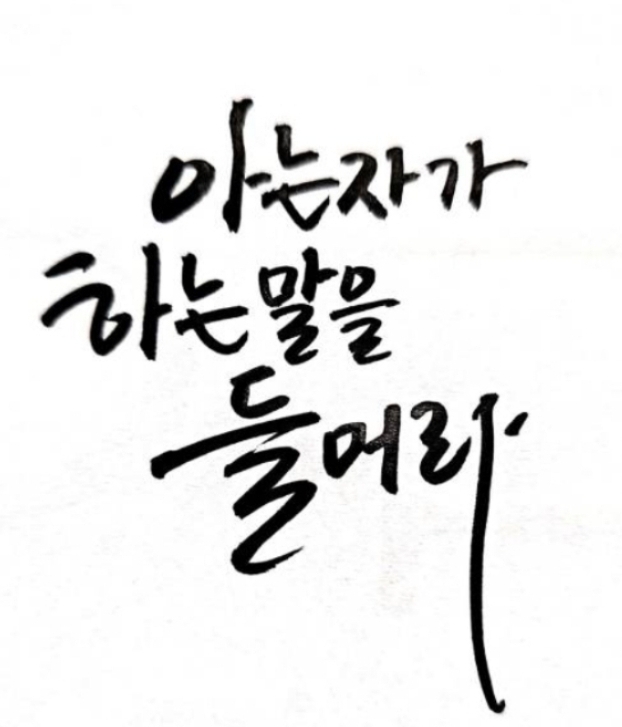 아는자가
하는말을
들어라